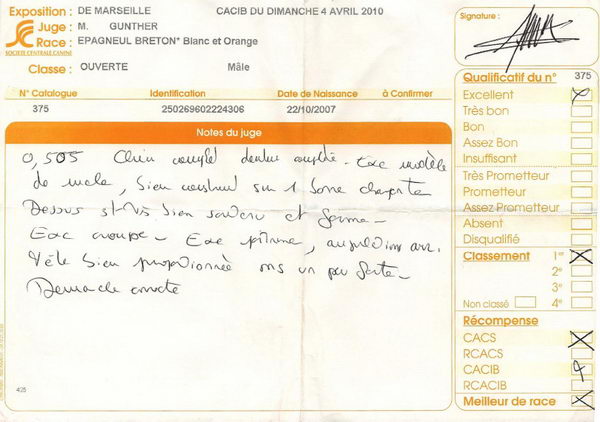 Exposition : DE MARSEILLE CACIB DU DIMANCHE 4 AVRIL 2010
Juge : M. GUNTHER
Race : EPAGNEUL BRETON* Blanc et Orange
SOCIETE CENTRALE CANINE
Classe : OUVERTE Mâle
N° Catalogue Identification Date de Naissance à Confirmer
375 250269602224306 22/10/2007
Notes du juge
0,505 Chien complet denture complète - Exc modèle
de male, bien construit sur 1 bonne charpente
Dessus bien soutenu et ferme -
Exc croupe - Exc poitrine, angulations
Tête bien proportionnée ms un peu forte -
Demarche correcte
425
Signature :
Qualificatif du n° 375
Excellent
Très bon
Bon
Assez Bon
Insuffisant
Très Prometteur
Prometteur
Assez Prometteur
Absent
Disqualifié
Classement 1er
2e
3e
Non classé 4e
Récompense
CACS
RCACS
CACIB
RCACIB
Meilleur de race